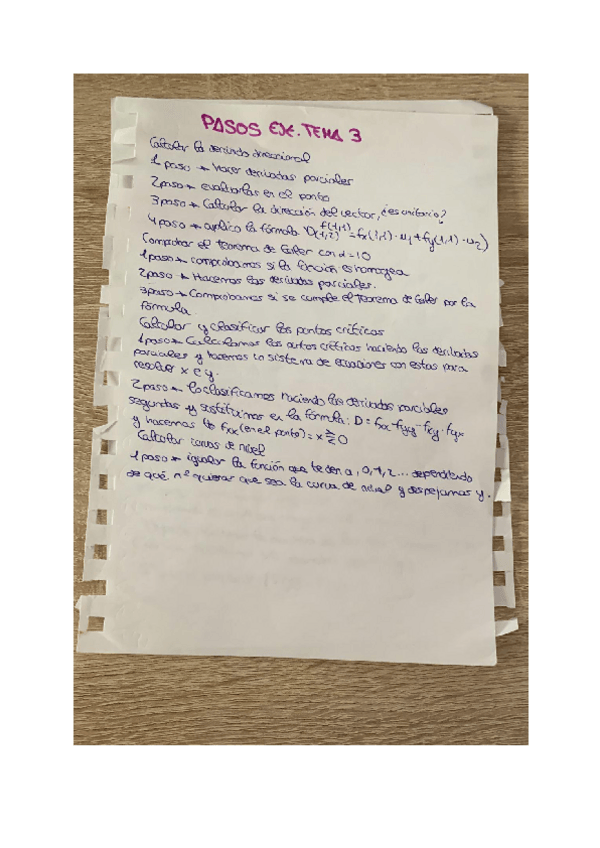 PASOS EJE. TEMA 3
Calcular la derivada direccional
1 paso → Hacer derivadas parciales
2 paso → evaluarlas en el punto
3 paso → Calcular la dirección del vector, ¿es unitario?
4 paso → aplico la fórmula D(1,2) f(1,1) = fx(1,1)·u1 + fy(1,1)·u2)
Comprobar el teorema de Euler con α=10
1 paso → comprobamos si la función es homogea
2 paso → Hacemos las derivadas parciales.
3 paso → Comprobamos si se cumple el Teorema de Euler por la
fórmula.
Calcular y clasificar los puntos críticos
1 paso → Calculamos los puntos críticos haciendo las derivadas
parciales y hacemos un sistema de ecuaciones con estas para
resolver x e y.
2 paso → los clasificamos haciendo las derivadas parciales
segundas y sustituimos en la fórmula: D = fxx · fyy - fxy · fyx
y hacemos la fxx (en el punto) = x ≷ 0
Calcular curvas de nivel
1 paso → igualar la función que te den a, 0, 1, 2... dependiendo
de qué nº quieras que sea la curva de nivel y despejamos y.